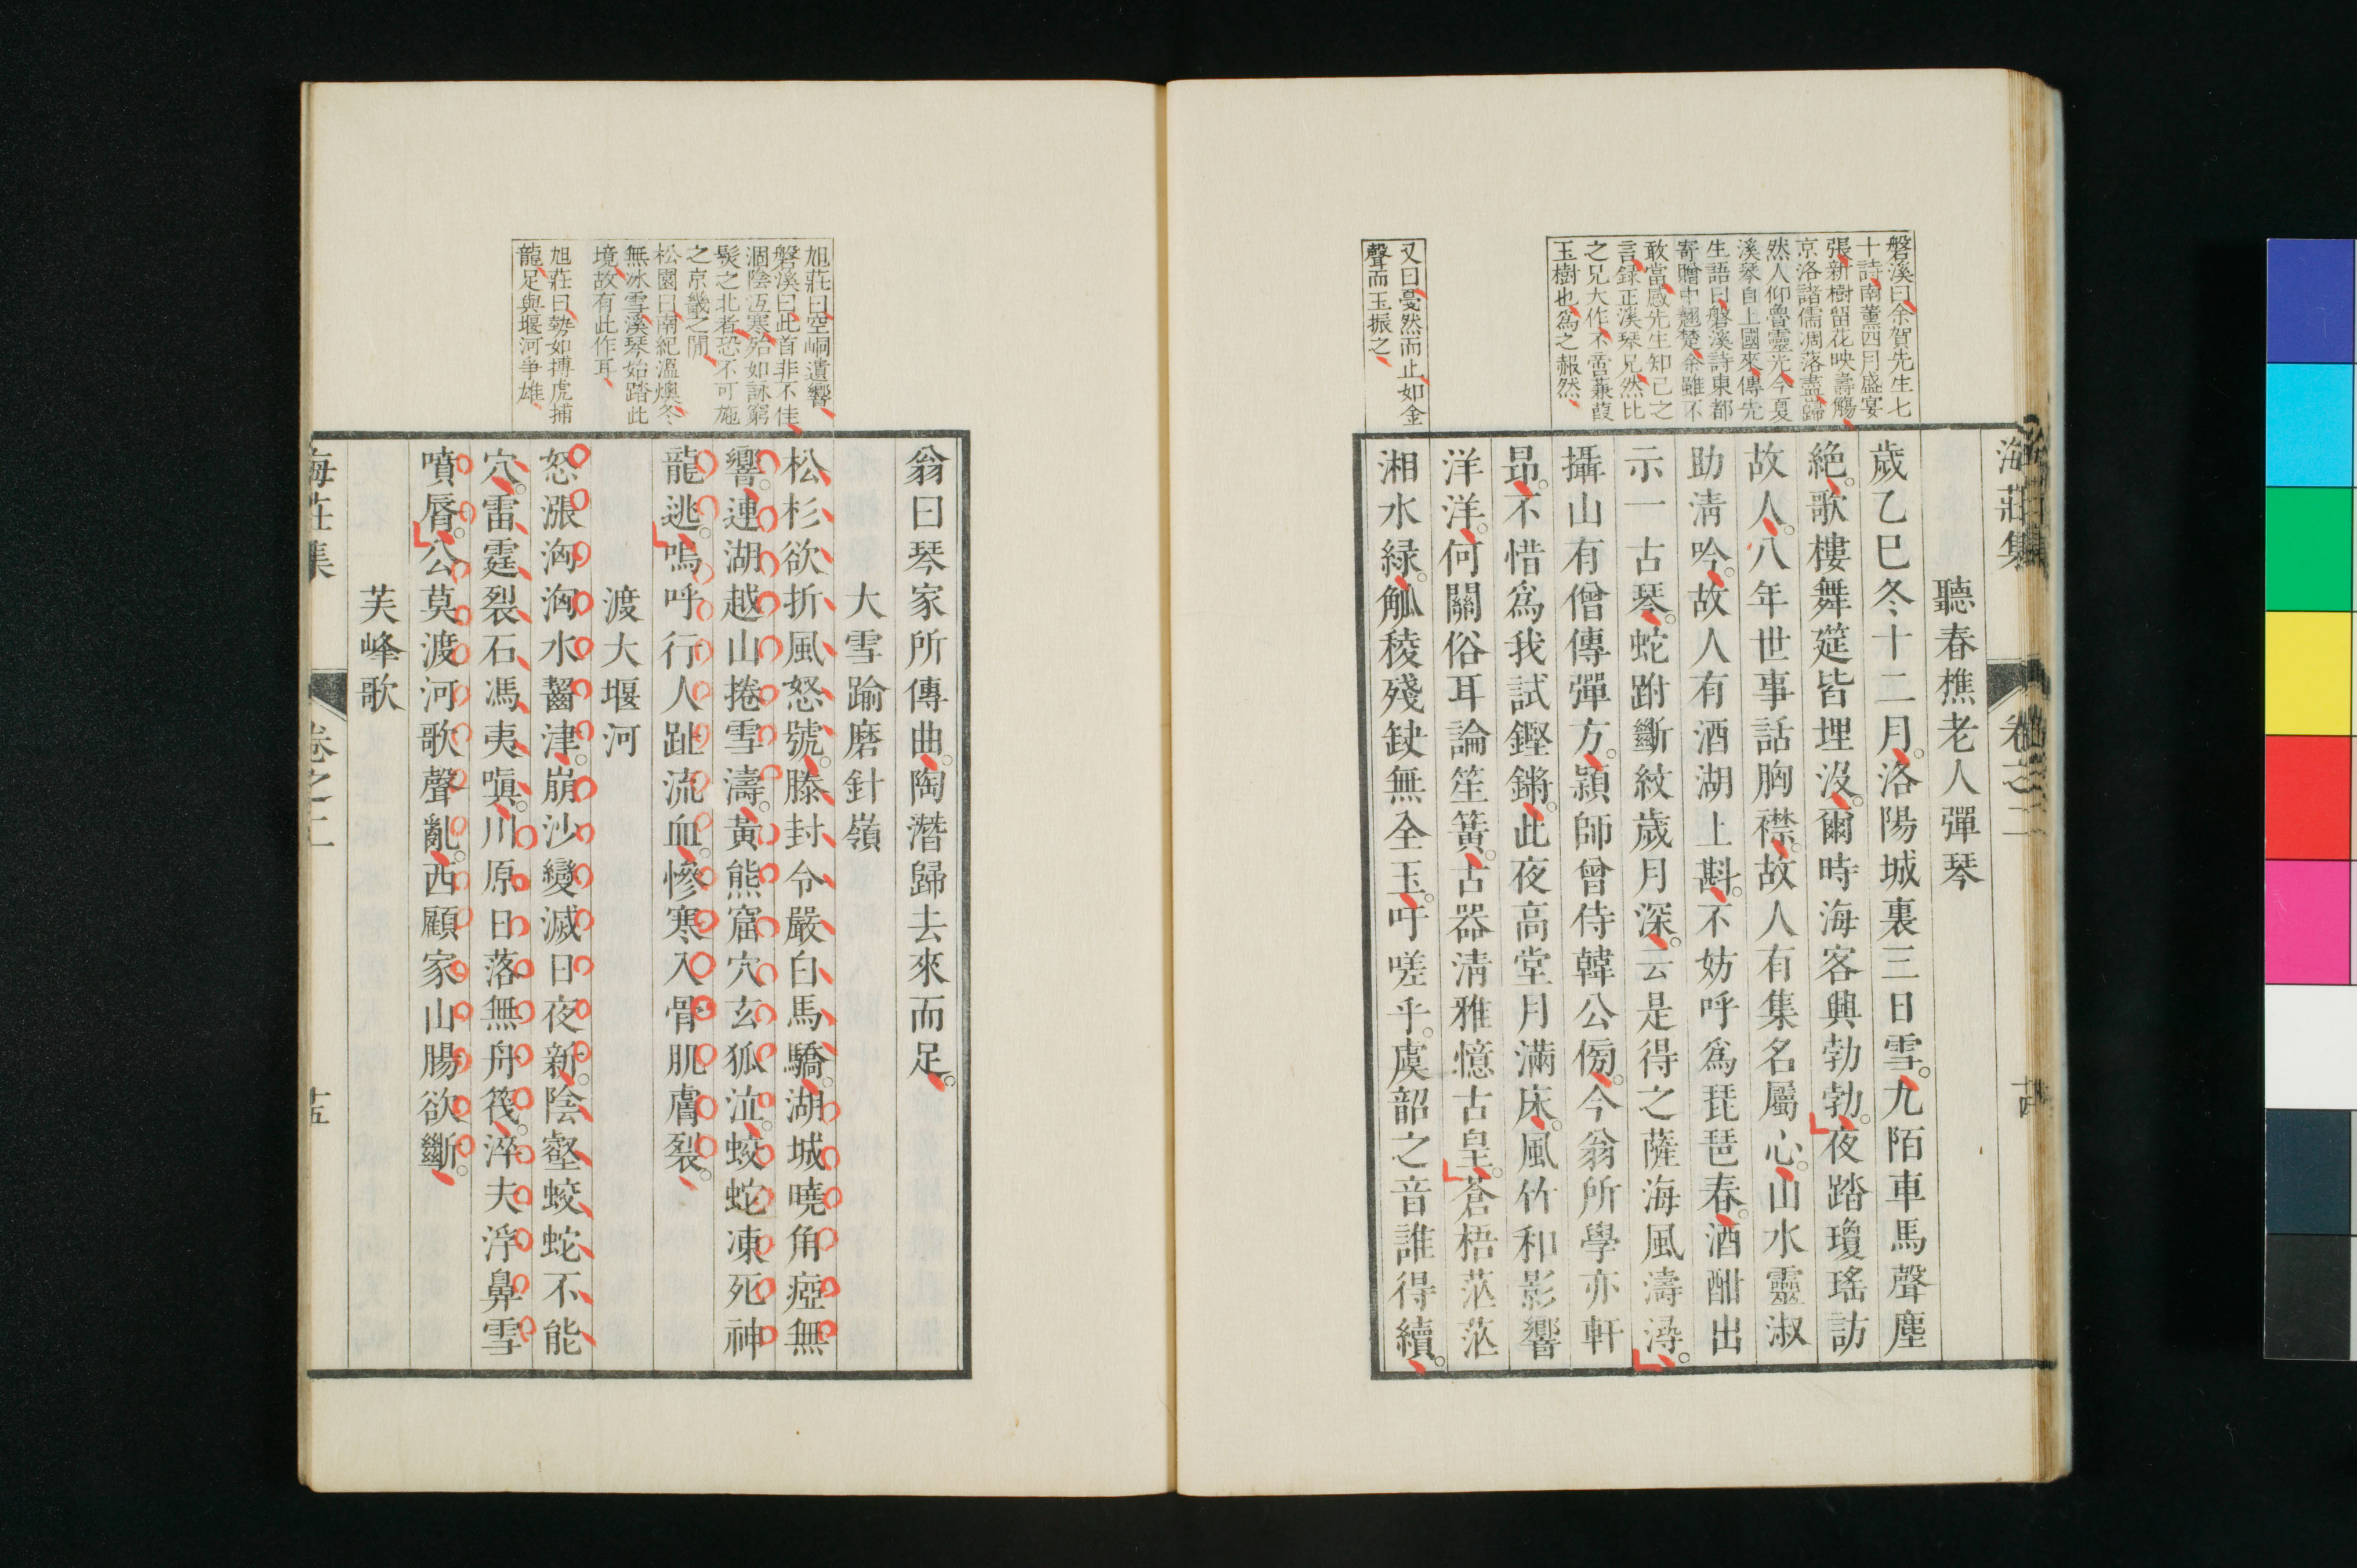 海莊集 卷之二 十四
聽春樵老人彈琴
歲乙巳冬十二月。洛陽城裏三日雪。九陌車馬聲塵
絶。歌樓舞筵皆埋沒。爾時海客興勃勃。夜踏瓊瑤訪
故人。八年世事話胸襟。故人有集名屬心。山水靈淑
助淸吟。故人有酒湖上斟。不妨呼爲琵琶春。酒酣出
示一古琴。蛇跗斷紋歲月深。云是得之薩海風濤潯。
攝山有僧傳彈方。頴師曾侍韓公傍。今翁所學亦軒
昂。不惜爲我試鏗鏘。此夜高堂月滿床。風竹和影響
洋洋。何關俗耳論笙簧。古器淸雅憶古皇。蒼梧茫茫
湘水緑。觚稜殘缺無全玉。吁嗟乎。虞韶之音誰得續。
磐溪曰余賀先生七
十詩南薰四月盛宴
張新樹留花映壽觴
京洛諸儒凋落盡歸
然人仰魯靈光今夏
溪琴自上國來傳先
生語曰磐溪詩東都
寄贈中翹楚余雖不
敢當感先生知己之
言録正溪琴兄然比
之兄大作不啻蒹葭
玉樹也爲之赧然
又曰戞然而止如金
聲而玉振之
翁曰琴家所傳曲。陶潛歸去來而足。
大雪踰磨針嶺
松杉欲折風怒號。滕封令嚴白馬驕。湖城曉角瘂無
響。連湖越山捲雪濤。黃熊窟穴玄狐泣。蛟蛇凍死神
龍逃。嗚呼行人趾流血。慘寒入骨肌膚裂。
渡大堰河
怒漲洶洶水齧津。崩沙變滅日夜新。陰壑蛟蛇不能
穴。雷霆裂石馮夷嗔。川原日落無舟筏。淬夫浮鼻雪
噴脣。公莫渡河歌聲亂。西顧家山腸欲斷。
芙峰歌
旭莊曰空峒遺響
磐溪曰此首非不佳
涸陰冱寒殆如詠窮
髮之北者恐不可施
之京畿之間
松園曰南紀溫燠冬
無冰雪溪琴始踏此
境故有此作耳
旭莊曰勢如搏虎捕
龍足與堰河爭雄
海莊集 卷之二 十五